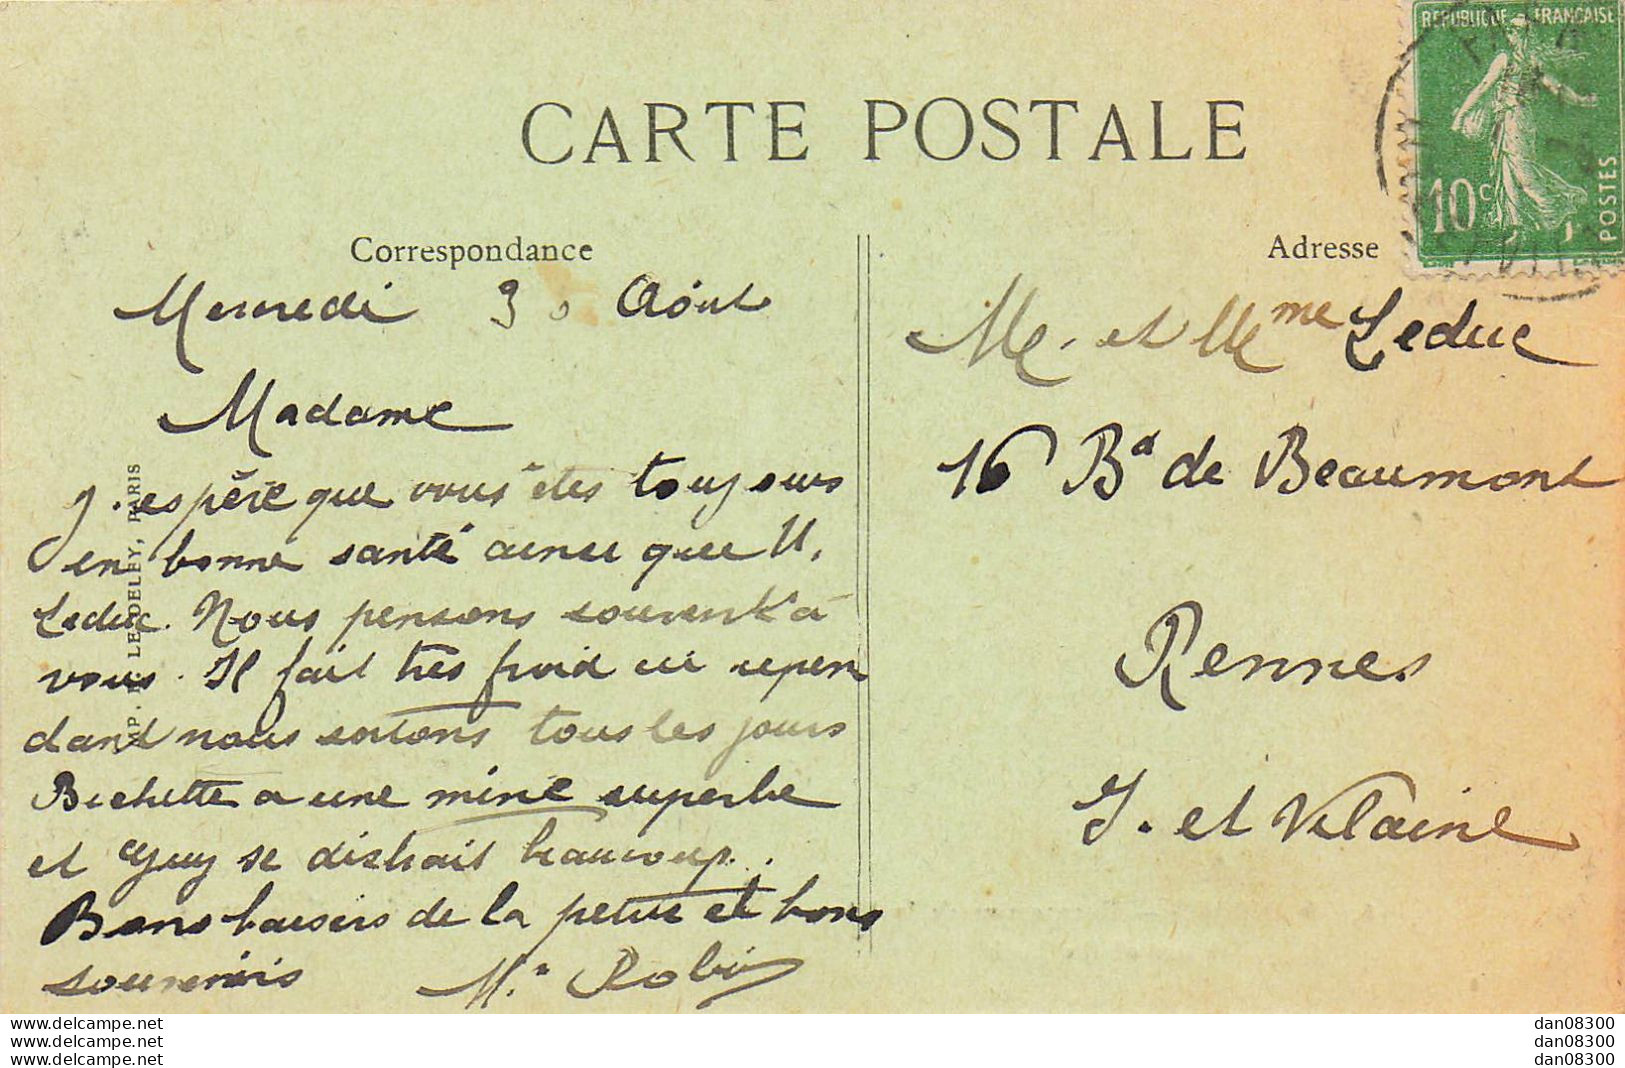 CARTE POSTALE
Correspondance
Adresse
RÉPUBLIQUE FRANÇAISE
10c
POSTES
Mercredi 30 Août
Madame
J'espère que vous êtes toujours
en bonne santé ainsi que M.
Leduc. Nous pensons souvent à
vous. Il fait très froid ici cepen
dant nous sortons tous les jours
Bichette a une mine superbe
et Guy se distrait beaucoup.
Bons baisers de la petite et bons
souvenirs M. Robin
IMP. E. LE DELEY, PARIS
Mr. et Mme Leduc
16 Bd de Beaumont
Rennes
I. et Vilaine
www.delcampe.net
www.delcampe.net
www.delcampe.net
dan08300
dan08300
dan08300